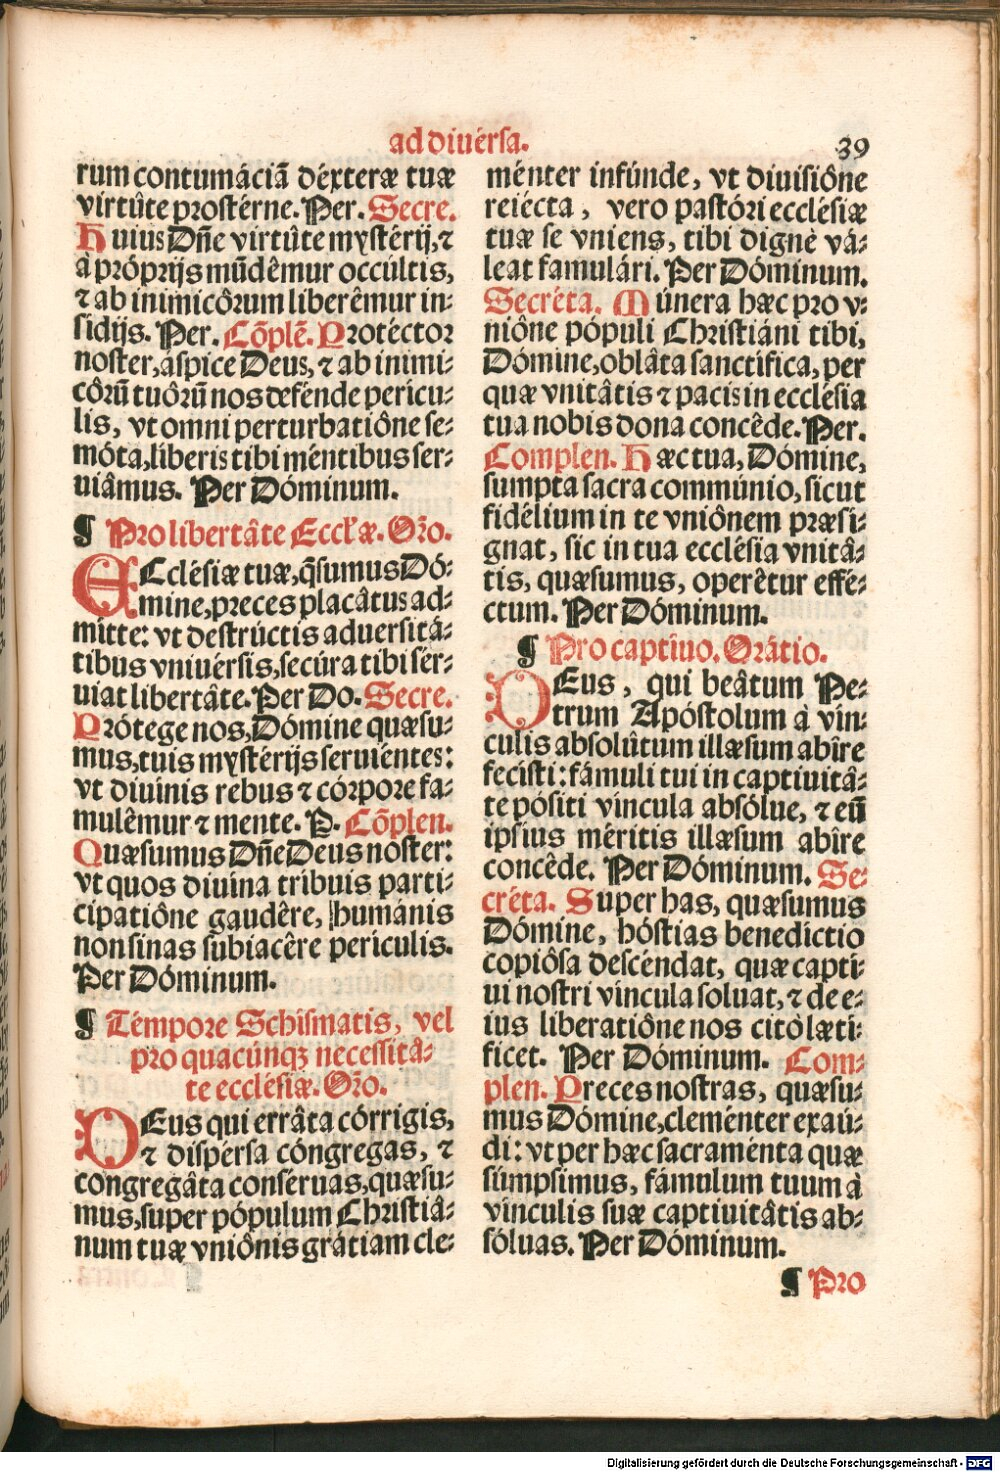 ad diuérsa.
39
rum contumáciã déxteræ tuæ
virtûte prostérne. Per. Secre.
Huius Dñe virtûte mystérij, ⁊
à próprijs mũdêmur occúltis,
⁊ ab inimicôrum liberêmur in-
sidijs. Per. Cõplẽ. Protéctor
noster, áspice Deus, ⁊ ab inimi-
côrũ tuôrũ nos defénde pericu-
lis, vt omni perturbatiône se-
móta, liberis tibi méntibus ser-
uiâmus. Per Dóminum.
¶ Pro libertâte Eccl'æ. Orõ.
ECclésiæ tuæ, q̃sumus Dó-
mine, preces placâtus ad-
mitte: vt destrúctis aduersitá-
tibus vniuérsis, secúra tibi sér-
uiat libertâte. Per Do. Secre.
Prótege nos, Dómine quæsu-
mus, tuis mystérijs seruientes:
vt diuínis rebus ⁊ córpore fa-
mulêmur ⁊ mente. P. Cõplen.
Quæsumus Dñe Deus noster:
vt quos diuína tríbuis parti-
cipatiône gaudêre, humánis
non sinas subiacêre perículis.
Per Dóminum.
¶ Témpore Schismatis, vel
pro quacúnqꝫ necessitâ-
te ecclésiæ. Orõ.
DEus qui errâta córrigis,
⁊ dispérsa cóngregas, ⁊
congregâta consèruas, quæsu-
mus, super pópulum Christiâ-
num tuæ vniônis grátiam cle-
ménter infúnde, vt diuisiône
reiécta, vero pastóri ecclésiæ
tuæ se vniens, tibi dignè vá-
leat famulári. Per Dóminum.
Secréta. Múnera hæc pro v-
niône pópuli Christiáni tibi,
Dómine, oblâta sanctífica, per
quæ vnitâtis ⁊ pacis in ecclésia
tua nobis dona concêde. Per.
Complen. Hæc tua, Dómine,
sumpta sacra commúnio, sicut
fidélium in te vniônem præsi-
gnat, sic in tua ecclésia vnitâ-
tis, quæsumus, operêtur effé-
ctum. Per Dóminum.
¶ Pro captíuo. Orátio.
DEus, qui beâtum Pe-
trum Apóstolum à vín-
culis absolûtum illæsum abîre
fecísti: fámuli tui in captiuitá-
te pósiti víncula absólue, ⁊ eũ
ipsíus méritis illæsum abîre
concêde. Per Dóminum. Se-
créta. Super has, quæsumus
Dómine, hóstias benedíctio
copiôsa descéndat, quæ captí-
ui nostri víncula soluat, ⁊ de e-
ius liberatiône nos citò læti-
ficet. Per Dóminum. Com-
plen. Preces nostras, quæsu-
mus Dómine, cleménter exaú-
di: vt per hæc sacraménta quæ
súmpsimus, fámulum tuum à
vínculis suæ captiuitâtis ab-
sóluas. Per Dóminum.
¶ Pro
Digitalisierung gefördert durch die Deutsche Forschungsgemeinschaft - DFG